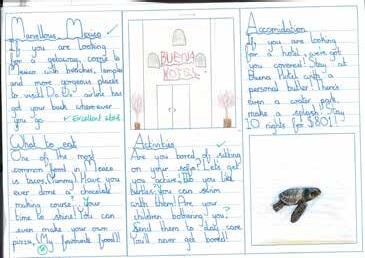 Marvellous Mexico
If you are looking
for a getaway, come to
Mexico with beaches, temples
and more gorgeous places
to visit! Do Do airline has
got your back wherever
you go.
✓ Excellent start
What to eat
One of the most
common food in Mexico
is tacos. Yummy! Have you
ever done a chocolate
making course? Your
time to shine! You can
even make your own
pizza. My favourite food!!
BUENA
HOTEL
Activities
Are you bored of sitting
on your sofa? Let's get
you active. Do you like
turtles? You can swim
with them! Are your
children bothering you?
Send them to day care.
You'll never get bored!
Accomidation
If you are looking
for a hotel, we've got
you covered! Stay at
Buena Hotel with a
personal butler! There's
even a water park,
make a splash. Stay
10 nights for $80!!